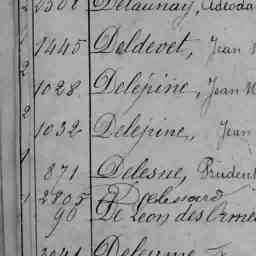 Delaunay, Adeoda
1445 Deldevet, Jean
1028 Delépine, Jean
1032 Delépine, Jean
871 Delesne, Prudent
2805
90 De Léon des Ormea
Deleume